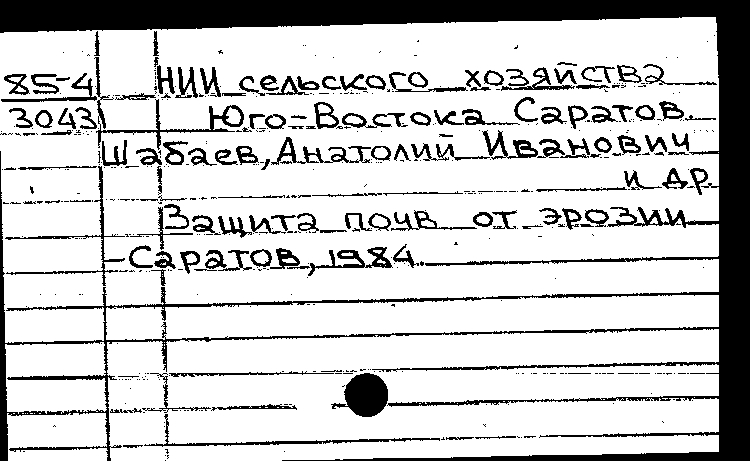 85-4 НИИ сельского хозяйства
3043 Юго-Востока Саратов.
Шабаев, Анатолий Иванович
и др.
Защита почв от эрозии
-Саратов, 1984.